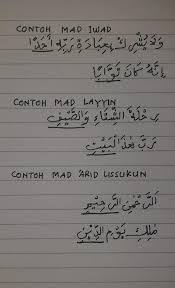 CONTOH MAD IWAD
وَلَا يُشْرِكْ بِعِبَادَةِ رَبِّهِ أَحَدًا
إِنَّهُ كَانَ تَوَّابًا
CONTOH MAD LAYYIN
رِحْلَةَ الشِّتَاءِ وَالصَّيْفِ
رَبَّ هٰذَا الْبَيْتِ
CONTOH MAD 'ARID LISSUKUN
الرَّحْمٰنِ الرَّحِيْمِ
مٰلِكِ يَوْمِ الدِّيْنِ